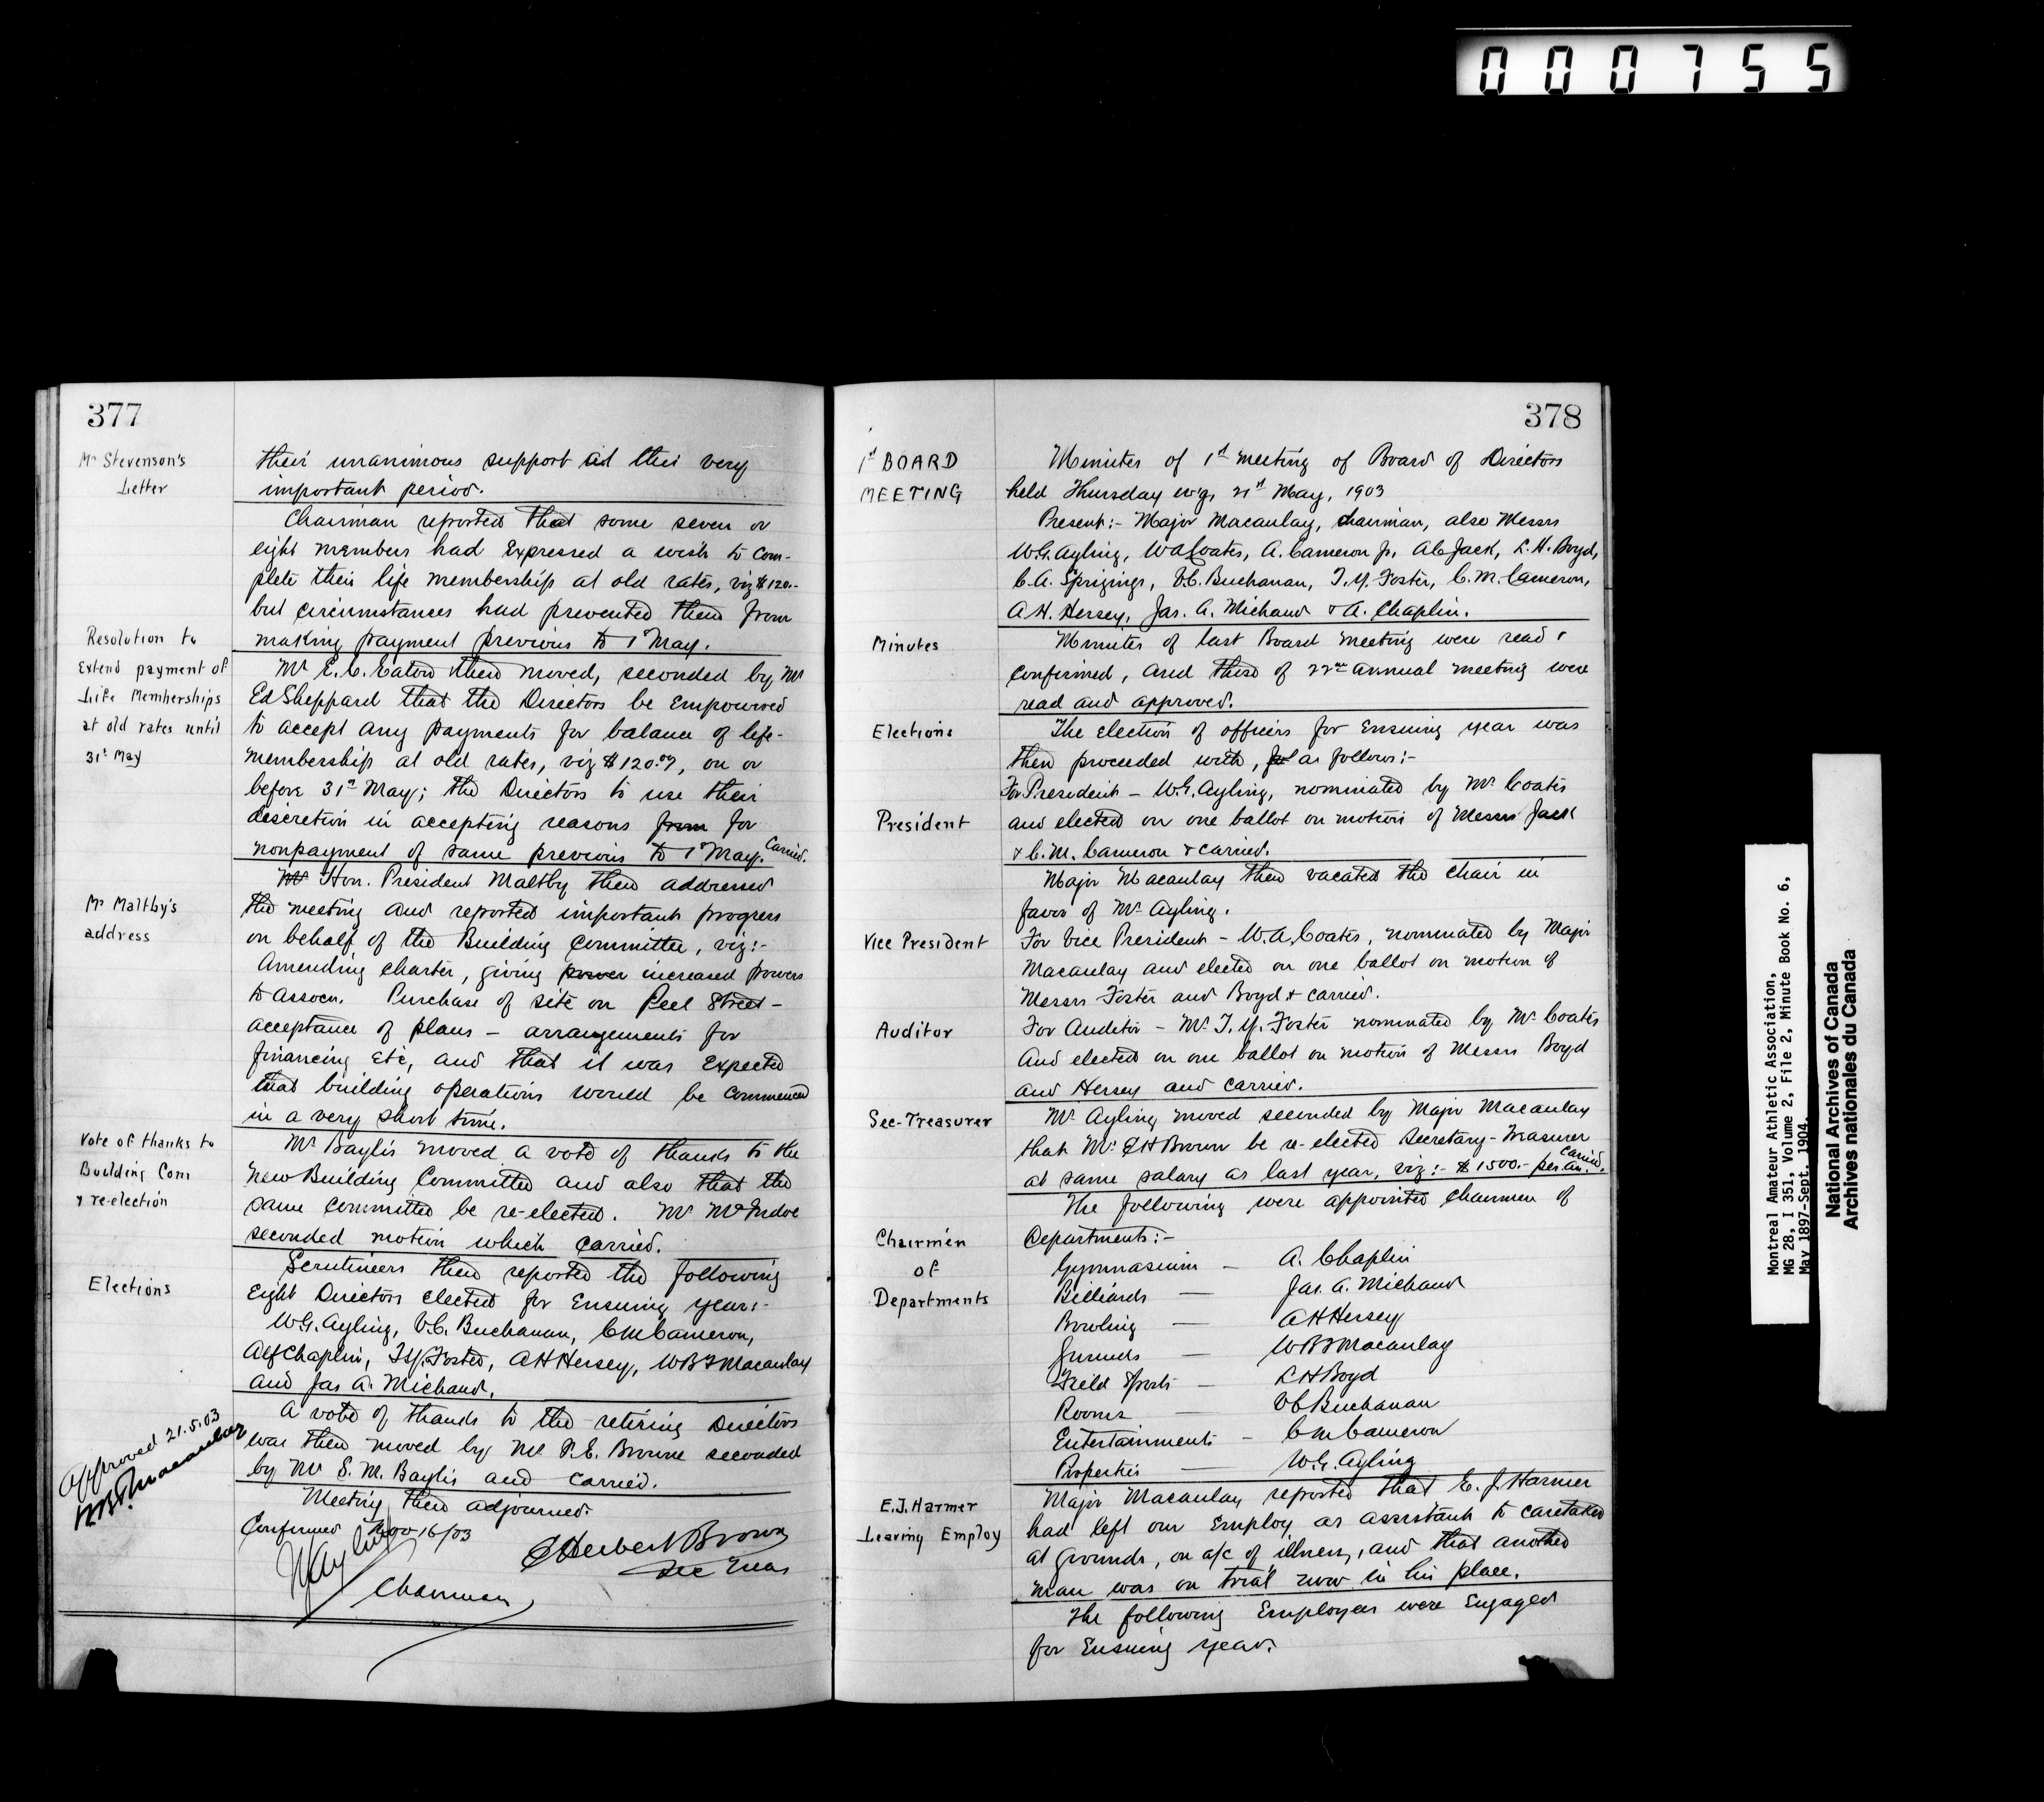 000755
377
Mr Stevenson's
Letter
their unanimous support at this very
important period.
Chairman reported that some seven or
eight members had expressed a wish to com-
plete their life membership at old rates, viz $120.-
but circumstances had prevented them from
making payment previous to 1st May.
Resolution to
Extend payment of
Life Memberships
at old rates until
31st May
Mr E. C. Eaton then moved, seconded by Mr
Ed Sheppard that the Directors be empowered
to accept any payments for balance of life-
membership at old rates, viz $120.00, on or
before 31st May; the Directors to use their
discretion in accepting reasons from for
nonpayment of same previous to 1st May. Carried.
Mr Maltby's
address
Mr Hon. President Maltby then addressed
the meeting and reported important progress
on behalf of the Building Committee, viz:-
Amending charter, giving power increased powers
to Assocn. Purchase of site on Peel Street -
acceptance of plans - arrangements for
financing etc, and that it was expected
that building operations would be commenced
in a very short time.
Vote of thanks to
Building Com
& re-election
Mr Baylis moved a vote of thanks to the
New Building Committee and also that the
same committee be re-elected. Mr McIndoe
seconded motion which carried.
Elections
Scrutineers then reported the following
Eight Directors elected for Ensuing year:-
W.G. Ayling, V.C. Buchanan, C M Cameron,
Alf Chaplin, T.Y. Foster, A H Hersey, W B T Macaulay
and Jas A. Michaud.
A vote of thanks to the retiring Directors
was then moved by Mr P.E. Browne seconded
by Mr S. M. Baylis and carried.
Meeting then adjourned.
Approved 21.5.03
W.B.T. Macaulay
Confirmed Nov 16/03
W Ayling
Chairman
E Herbert Brown
Sec Treas
378
1st BOARD
MEETING
Minutes of 1st meeting of Board of Directors
held Thursday ev'g, 21st May, 1903
Present:- Major Macaulay, chairman, also Messrs
W.G. Ayling, W A Coates, A. Cameron Jr, A C Jack, L. H. Boyd,
C. A. Sprigings, V.C. Buchanan, T. Y. Foster, C. M. Cameron,
A H. Hersey, Jas. A. Michaud & A. Chaplin.
Minutes
Minutes of last Board meeting were read &
confirmed, and those of 22nd annual meeting were
read and approved.
Elections
The election of officers for ensuing year was
then proceeded with, as follows:-
President
For President - W.G. Ayling, nominated by Mr Coates
and elected on one ballot on motion of Messrs Jack
& C. M. Cameron & carried.
Major Macaulay then vacated the chair in
favor of Mr Ayling.
Vice President
For Vice President - W. A. Coates, nominated by Major
Macaulay and elected on one ballot on motion of
Messrs Foster and Boyd & carried.
Auditor
For Auditor - Mr T. Y. Foster nominated by Mr Coates
And elected on one ballot on motion of Messrs Boyd
and Hersey and carried.
Sec-Treasurer
Mr Ayling moved seconded by Major Macaulay
that Mr E H Brown be re-elected Secretary-Treasurer
at same salary as last year, viz:- $1500.- per an. Carried.
The following were appointed chairmen of
Chairmen
of
Departments
Departments:-
Gymnasium - A. Chaplin
Billiards - Jas. A. Michaud
Bowling - A H Hersey
Grounds - W B T Macaulay
Field Sports - L H Boyd
Rooms - V C Buchanan
Entertainments - C M Cameron
Properties - W.G. Ayling
E.J. Harmer
Leaving Employ
Major Macaulay reported that E. J. Harmer
had left our employ as assistant to caretaker
at grounds, on a/c of illness, and that another
man was on trial now in his place.
The following Employees were engaged
for Ensuing year.
Montreal Amateur Athletic Association,
MG 28, I 351, Volume 2, File 2, Minute Book No. 6,
May 1897-Sept. 1904.
National Archives of Canada
Archives nationales du Canada